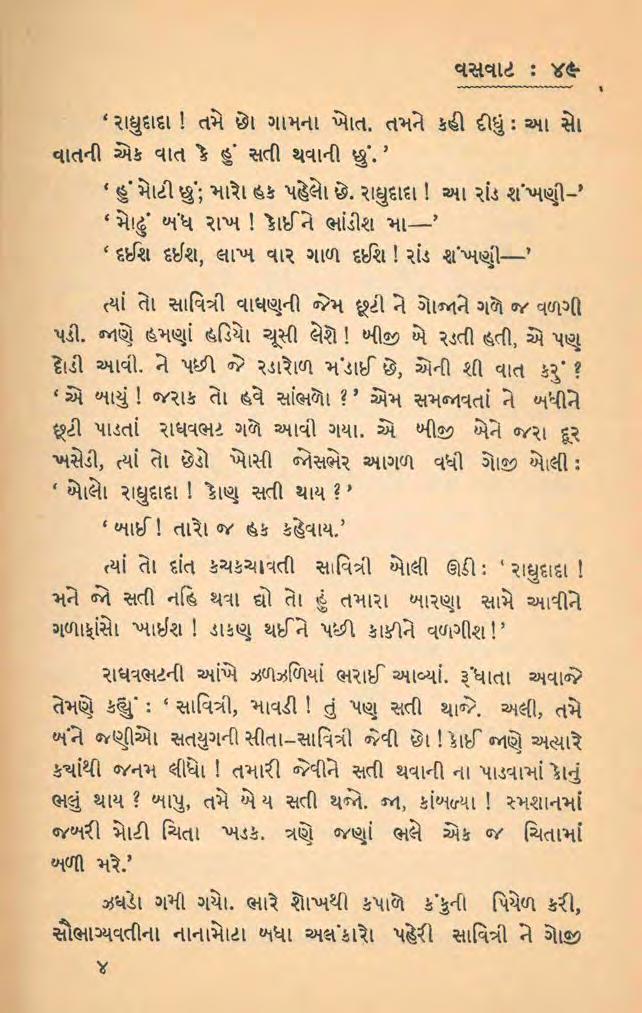 વસવાટ : ૪૯
‘ રાઘુદાદા ! તમે છો ગામના ખોત. તમને કહી દીધું : આ સો
વાતની એક વાત કે હું સતી થવાની છું. ’
‘ હું મોટી છું; મારો હક પહેલો છે. રાઘુદાદા ! આ રાંડ શંખણી–’
‘ મોઢું બંધ રાખ ! કોઈને ભાંડીશ મા—’
‘ દઈશ દઈશ, લાખ વાર ગાળ દઈશ ! રાંડ શંખણી—’
ત્યાં તો સાવિત્રી વાઘણની જેમ છૂટી ને ગોજીને ગળે જ વળગી
પડી. જાણે હમણાં હડિયો ચૂસી લેશે ! બીજી બે રડતી હતી, એ પણ
દોડી આવી. ને પછી જે રડારોળ મંડાઈ છે, એની શી વાત કરું ?
‘ એ બાયું ! જરાક તો હવે સાંભળો ? ’ એમ સમજાવતાં ને બધીને
છૂટી પાડતાં રાઘવભટ ગળે આવી ગયા. એ બીજી બેને જરા દૂર
ખસેડી, ત્યાં તો છેડો ખોસી જોસભેર આગળ વધી ગોજી બોલી :
‘ બોલો રાઘુદાદા ! કોણ સતી થાય ? ’
‘ બાઈ ! તારો જ હક કહેવાય.’
ત્યાં તો દાંત કચકચાવતી સાવિત્રી બોલી ઊડી : ‘ રાઘુદાદા !
મને જો સતી નહિ થવા દ્યો તો હું તમારા બારણા સામે આવીને
ગળાફાંસો ખાઈશ ! ડાકણ થઈને પછી કાકીને વળગીશ ! ’
રાઘવભટની આંખે ઝળઝળિયાં ભરાઈ આવ્યાં. રૂંધાતા અવાજે
તેમણે કહ્યું : ‘ સાવિત્રી, માવડી ! તું પણ સતી થાજે. અલી, તમે
બંને જણીઓ સતયુગની સીતા–સાવિત્રી જેવી છો ! કોઈ જાણે અત્યારે
કયાંથી જનમ લીધો ! તમારી જેવીને સતી થવાની ના પાડવામાં કોનું
ભલું થાય ? બાપુ, તમે બે ય સતી થજો. જા, કાંબળ્યા ! સ્મશાનમાં
જબરી મોટી ચિતા ખડક. ત્રણે જણાં ભલે એક જ ચિતામાં
બળી મરે.’
ઝઘડો ગમી ગયો. ભારે શોખથી કપાળે કંકુની પિયેળ કરી,
સૌભાગ્યવતીના નાનામોટા બધા અલંકારો પહેરી સાવિત્રી ને ગોજી
૪